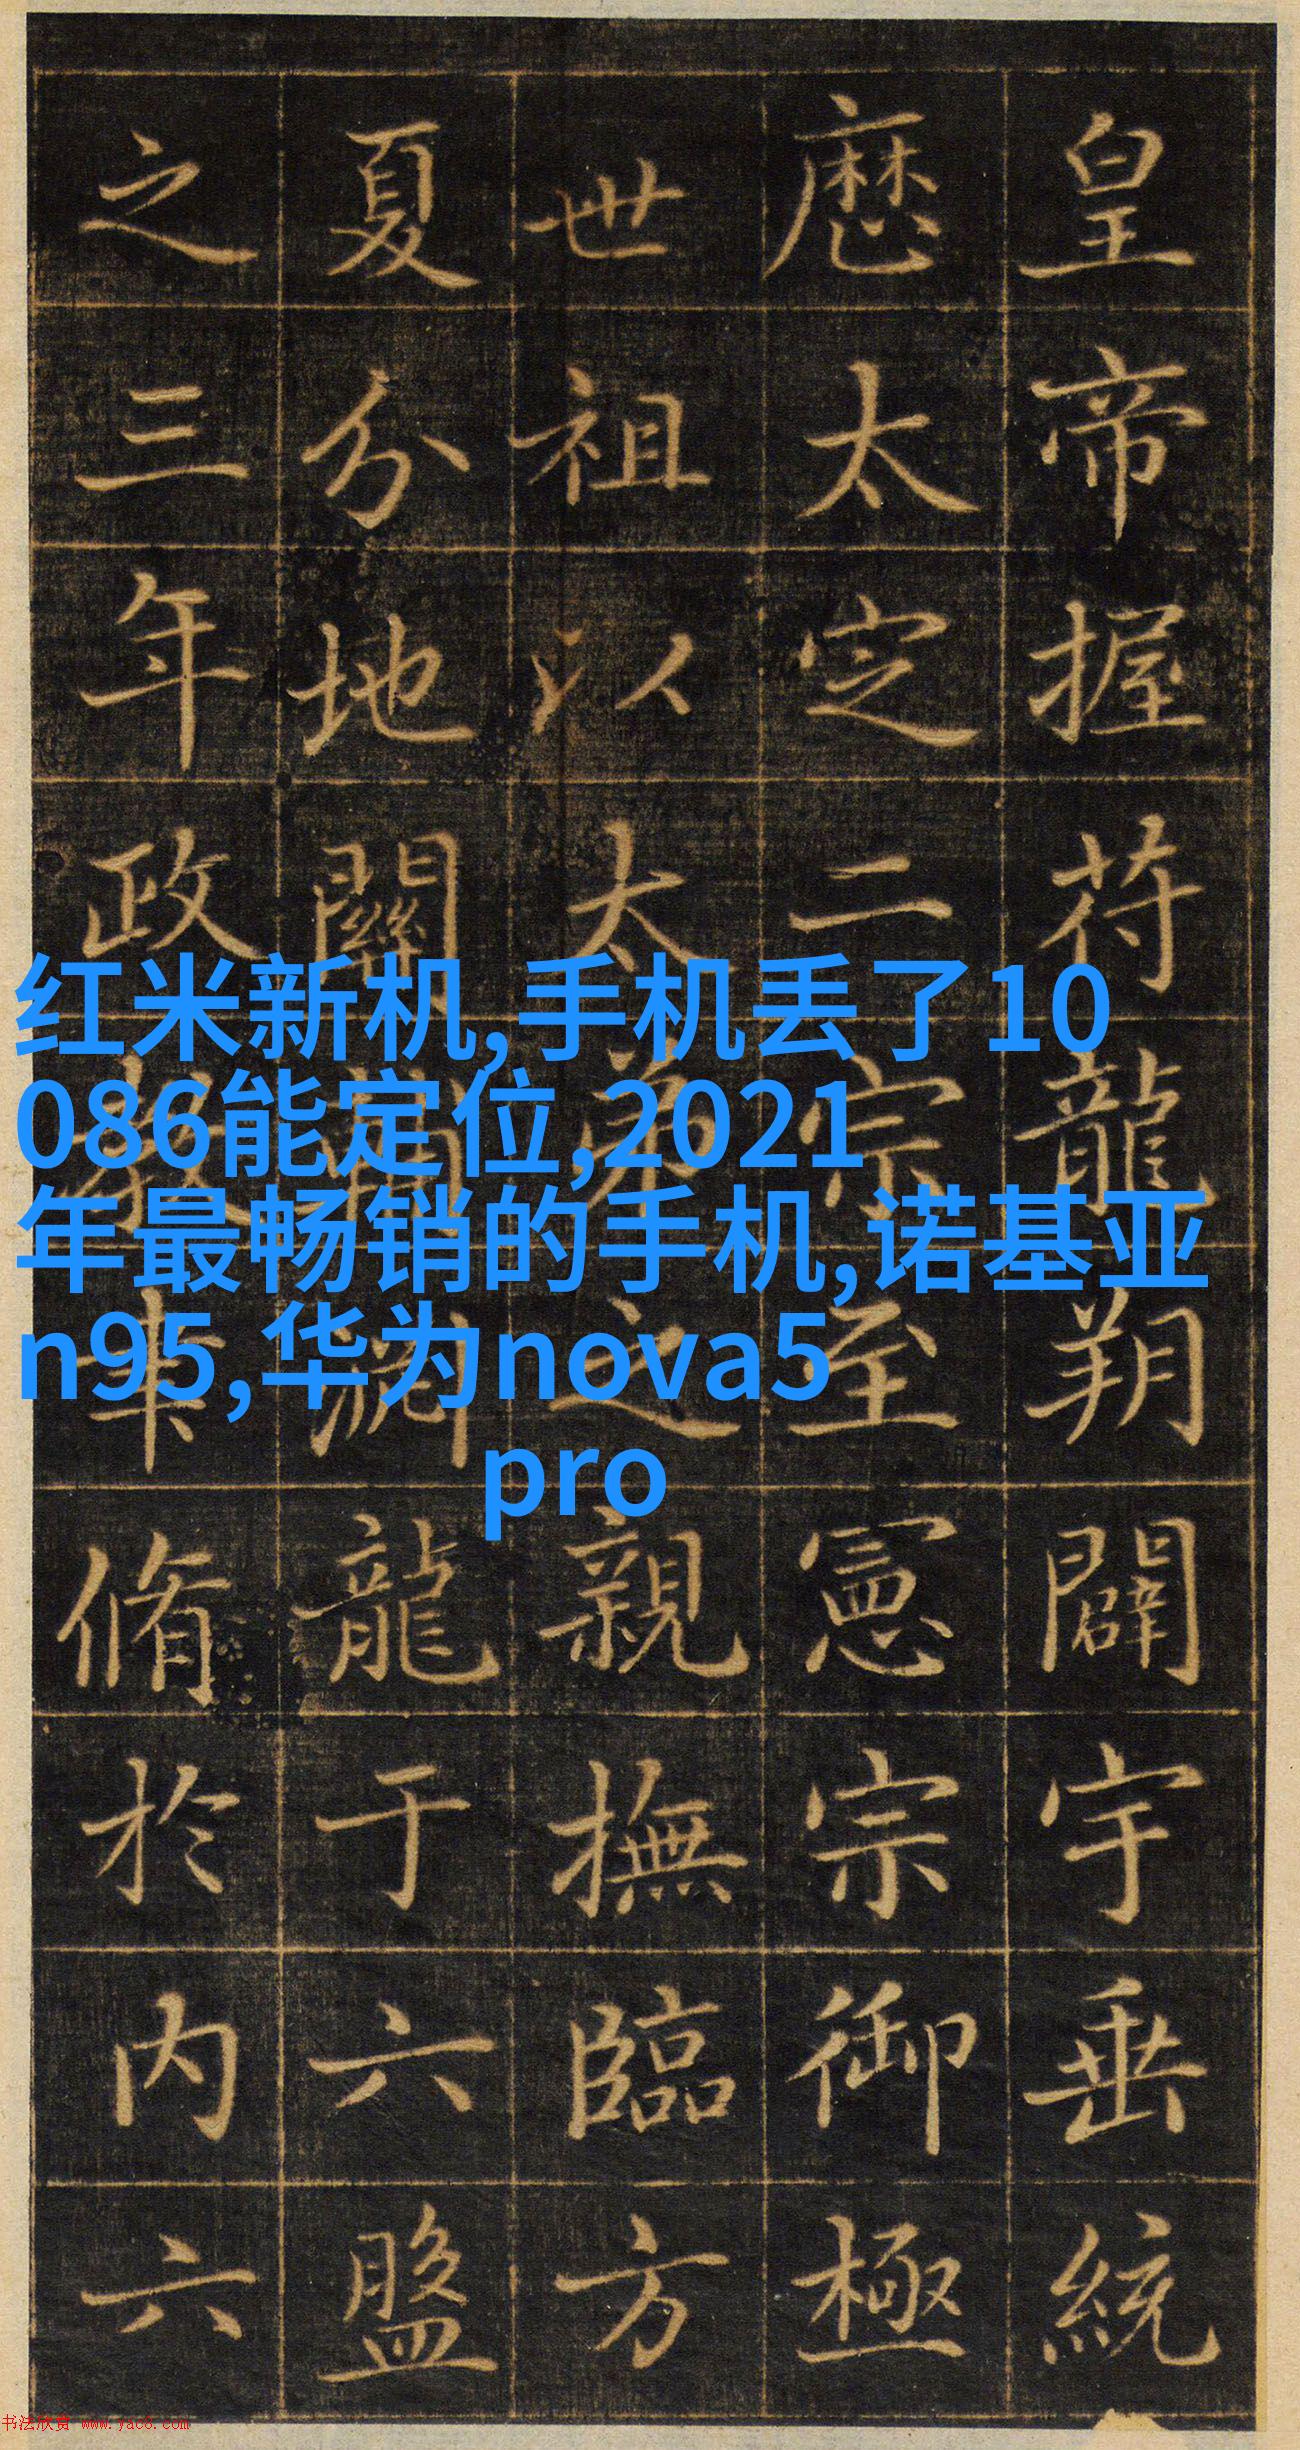 皇帝握符龍朔闢宇垂統
厯太定二宗至憲宗御極
世祖以太弟之親撫臨方
夏分地關龍于六盤
之三年政教脩於内六
红米新机,手机丢了10
086能定位,2021
年最畅销的手机,诺基亚
n95,华为nova5
pro
书法欣赏 www.yac8.com